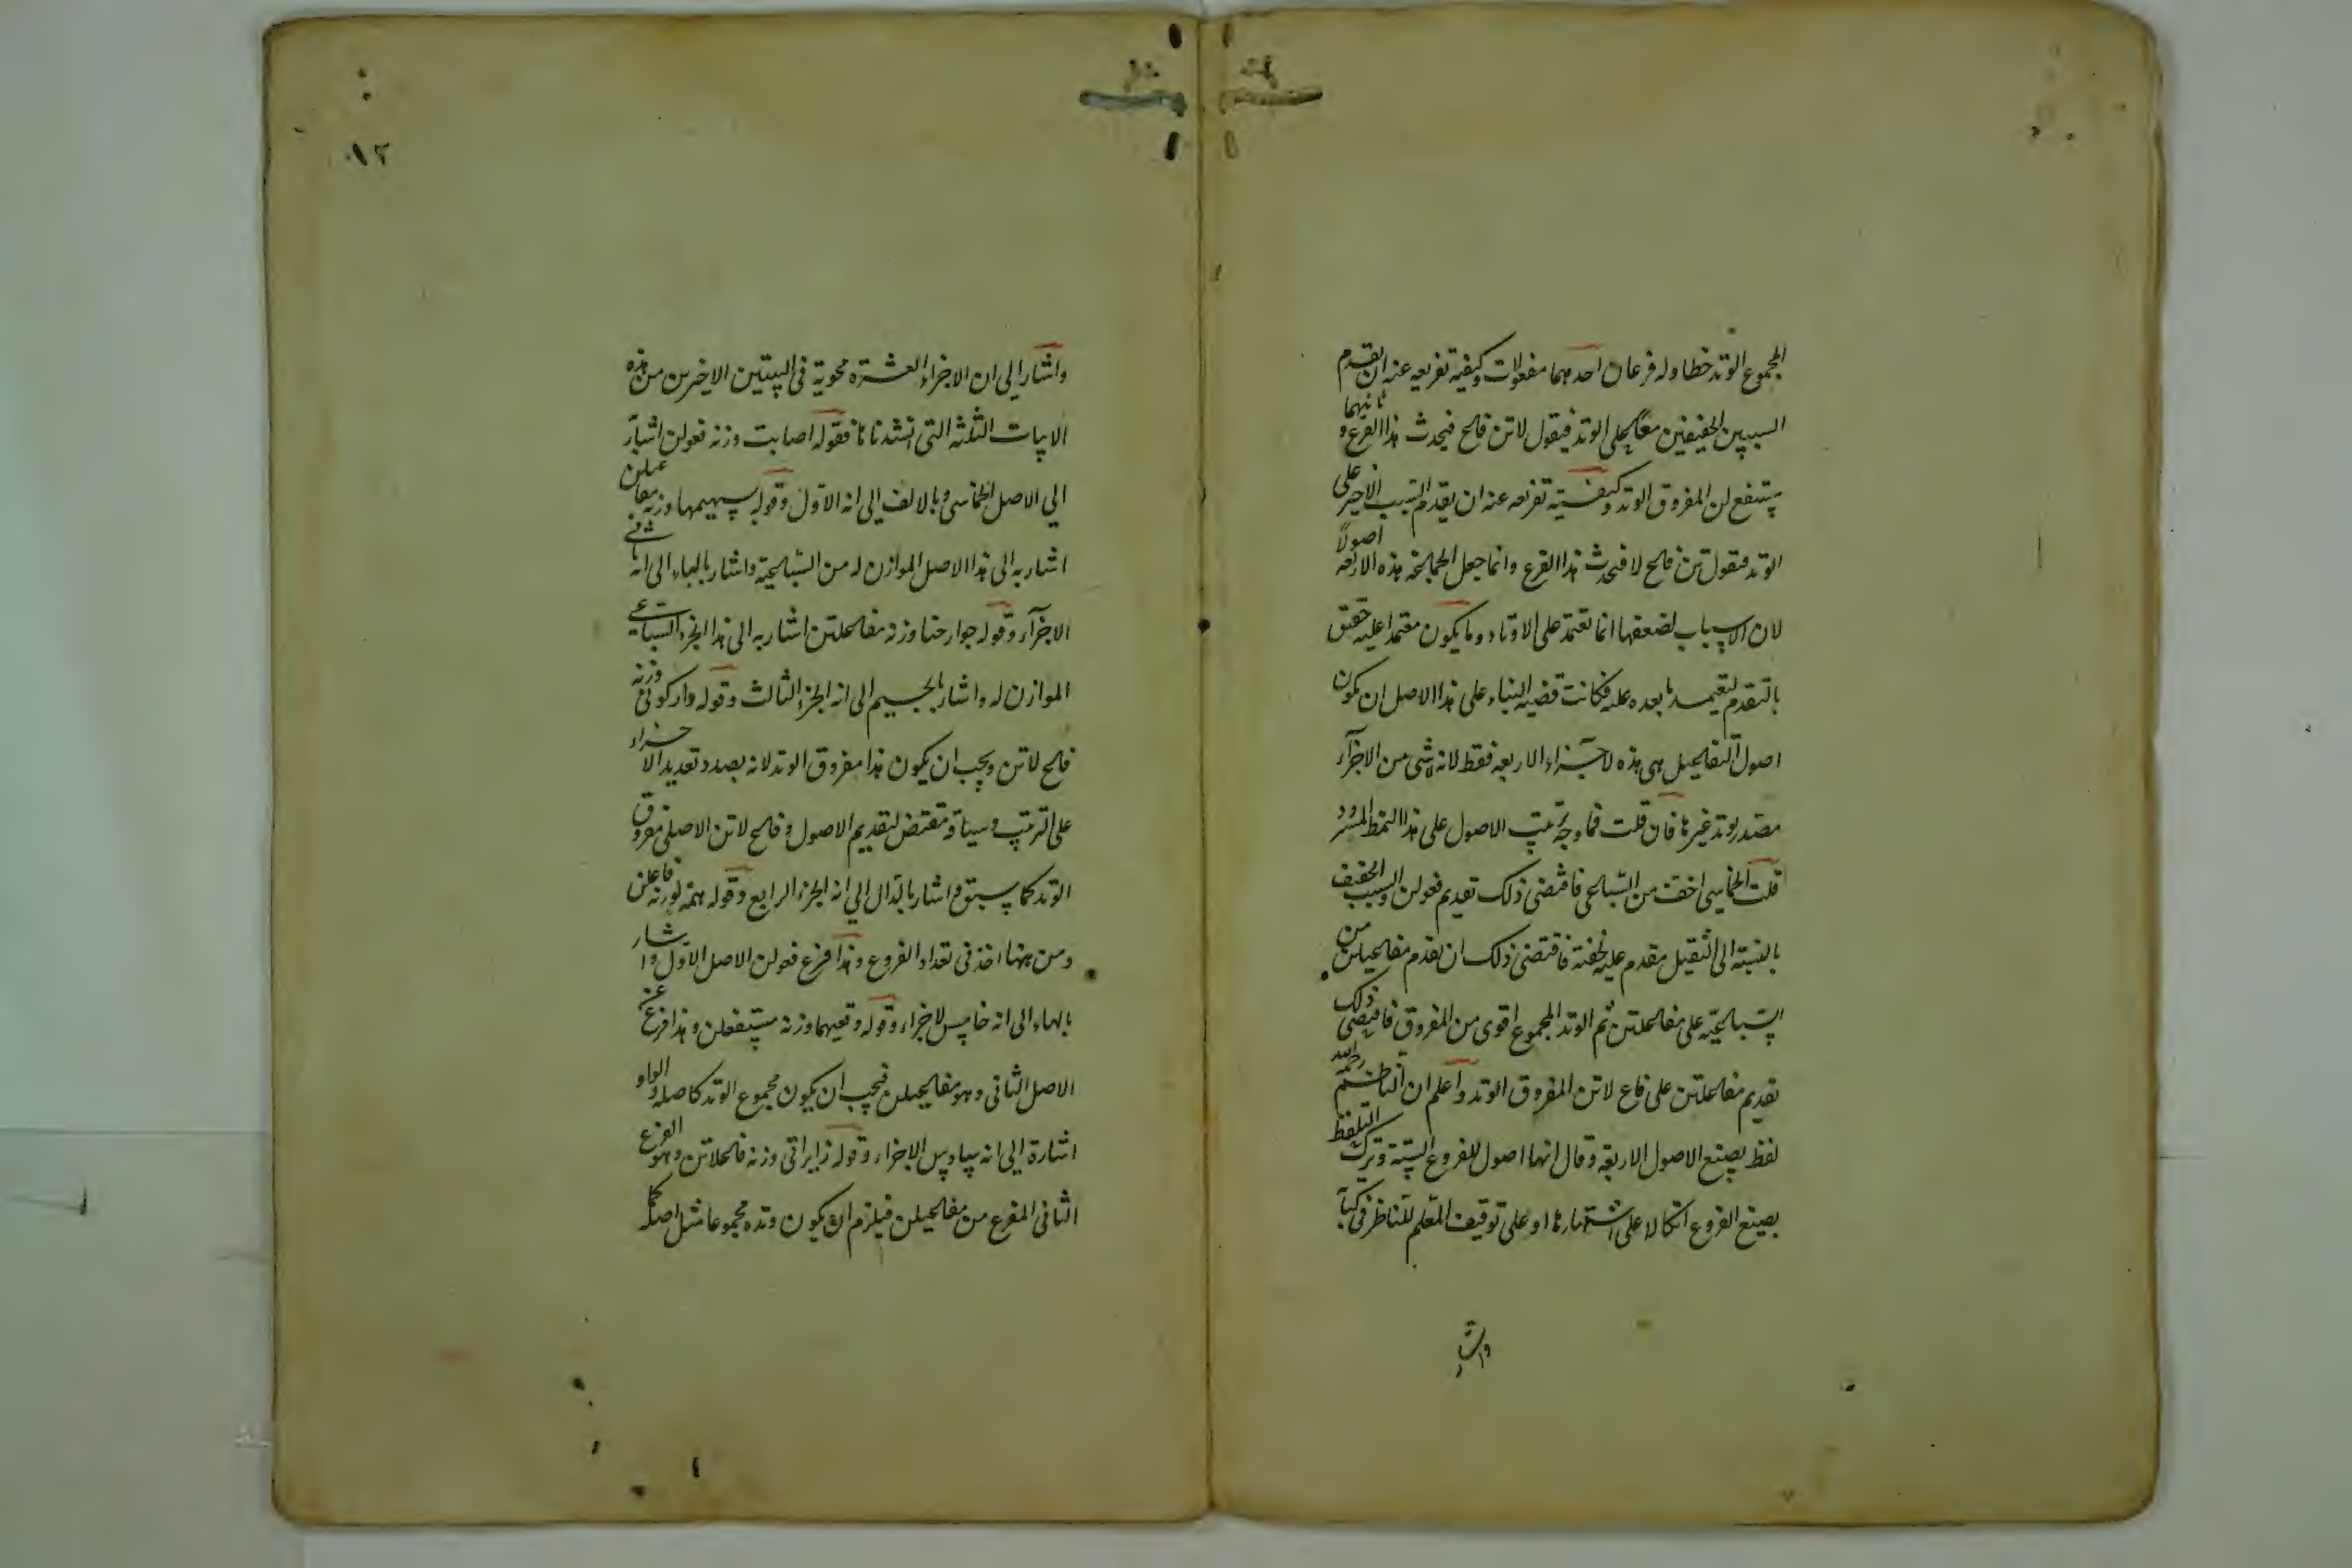 المجموع الوتد خطا وله فرعان احدهما مفعولات وكيفية تفريعه عنه ان تقدم
السببين الخفيفين معا على الوتد فيقول لاتن فاع فيحدث هذا الفرع وثانيهما
مستفع لن المفروق الوتد وكيفية تفريعه عنه ان يقدم السبب الاخير على
الوتد فيقول تن فاع لا فيحدث هذا الفرع وانما جعل الجماعة هذه الاربعة اصولا
لان الاسباب لضعفها انما تعتمد على الاوتاد وما يكون معتمدا عليه حقيق
بالتقدم ليعتمد ما بعده عليه فكانت قضية البناء على هذا الاصل ان يكون
اصول التفاعيل هى هذه الاجزاء الاربعة فقط لانه لا شى من الاجزآء
مصدر بوتد غيرها فان قلت فما وجه ترتيب الاصول على هذا النمط المسرود
قلت الخماسى اخف من السباعى فاقتضى ذلك تقديم فعولن والسبب الخفيف
بالنسبة الى الثقيل مقدم عليه لخفته فاقتضى ذلك ان تقدم مفاعيلن من
السباعية على مفاعلتن ثم الوتد المجموع اقوى من المفروق فاقتضى ذلك
تقديم مفاعلتن على فاع لاتن المفروق الوتد واعلم ان الناظم رحمه الله
لفظ بصيغ الاصول الاربعة وقال انها اصول للفروع الستة وترك التلفظ
بصيغ الفروع اتكالا على اشتهارها او على توقيف المعلم للناظر فى كتابه
واشار
١٢
واشار الى ان الاجزاء العشرة محوية فى البيتين الاخيرين من هذه
الابيات الثلثة التى انشدناها فقوله اصابت وزنه فعولن اشار
الى الاصل الخماسى وبالالف الى انه الاول وقوله بسهميها وزنه مفاعيلن
اشار به الى هذا الاصل الموازن له من السباعية واشار بالباء الى انه ثانى
الاجزآء وقوله جوارحنا وزنه مفاعلتن اشار به الى هذا الجزء السباعى
الموازن له واشار بالجيم الى انه الجزء الثالث وقوله داركونى وزنه
فاع لاتن ويجب ان يكون هذا مفروق الوتد لانه بصدد تعديد الاجزاء
على الترتيب وسياقه مقتض لتقديم الاصول وفاع لاتن الاصلى مفروق
الوتد كما سبق واشار بالدال الى انه الجزء الرابع وقوله همه لو وزنه فاعلن
ومن ههنا اخذ فى تعداد الفروع وهذا فرع فعولن الاصل الاول واشار
بالهاء الى انه خامس الاجزاء وقوله وقعيهما وزنه مستفعلن وهذا فرع عن
الاصل الثانى وهو مفاعيلن فيجب ان يكون مجموع الوتد كاصله والواو
اشارة الى انه سادس الاجزاء وقوله زايراتى وزنه فاعلاتن وهو الفرع
الثانى المفرع من مفاعيلن فيلزم ان يكون وتده مجموعا مثل اصله كما